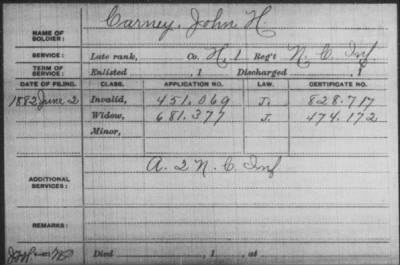 NAME OF SOLDIER: Carney, John H.
SERVICE: Late rank, Co. H, 1 Reg't N. C. Inf
TERM OF SERVICE: Enlisted , 1 Discharged , 1
DATE OF FILING. CLASS. APPLICATION NO. LAW. CERTIFICATE NO.
1882 June 2 Invalid, 451.069 J. 828.717
Widow, 681.377 J. 474.172
Minor,
ADDITIONAL SERVICES: A. 2 N. C. Inf
REMARKS:
Died , 1 , at